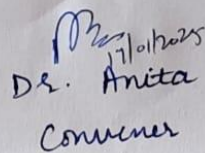 17/01/2025
Dr. Anita
Convener